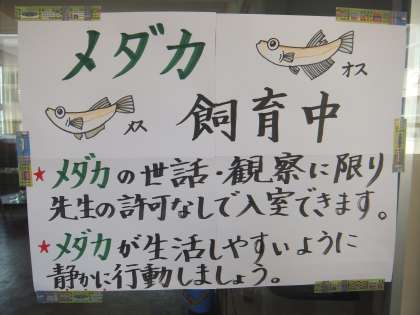 メダカ
オス
メス
飼育中
★メダカの世話・観察に限り
先生の許可なしで入室できます。
★メダカが生活しやすいように
静かに行動しましょう。